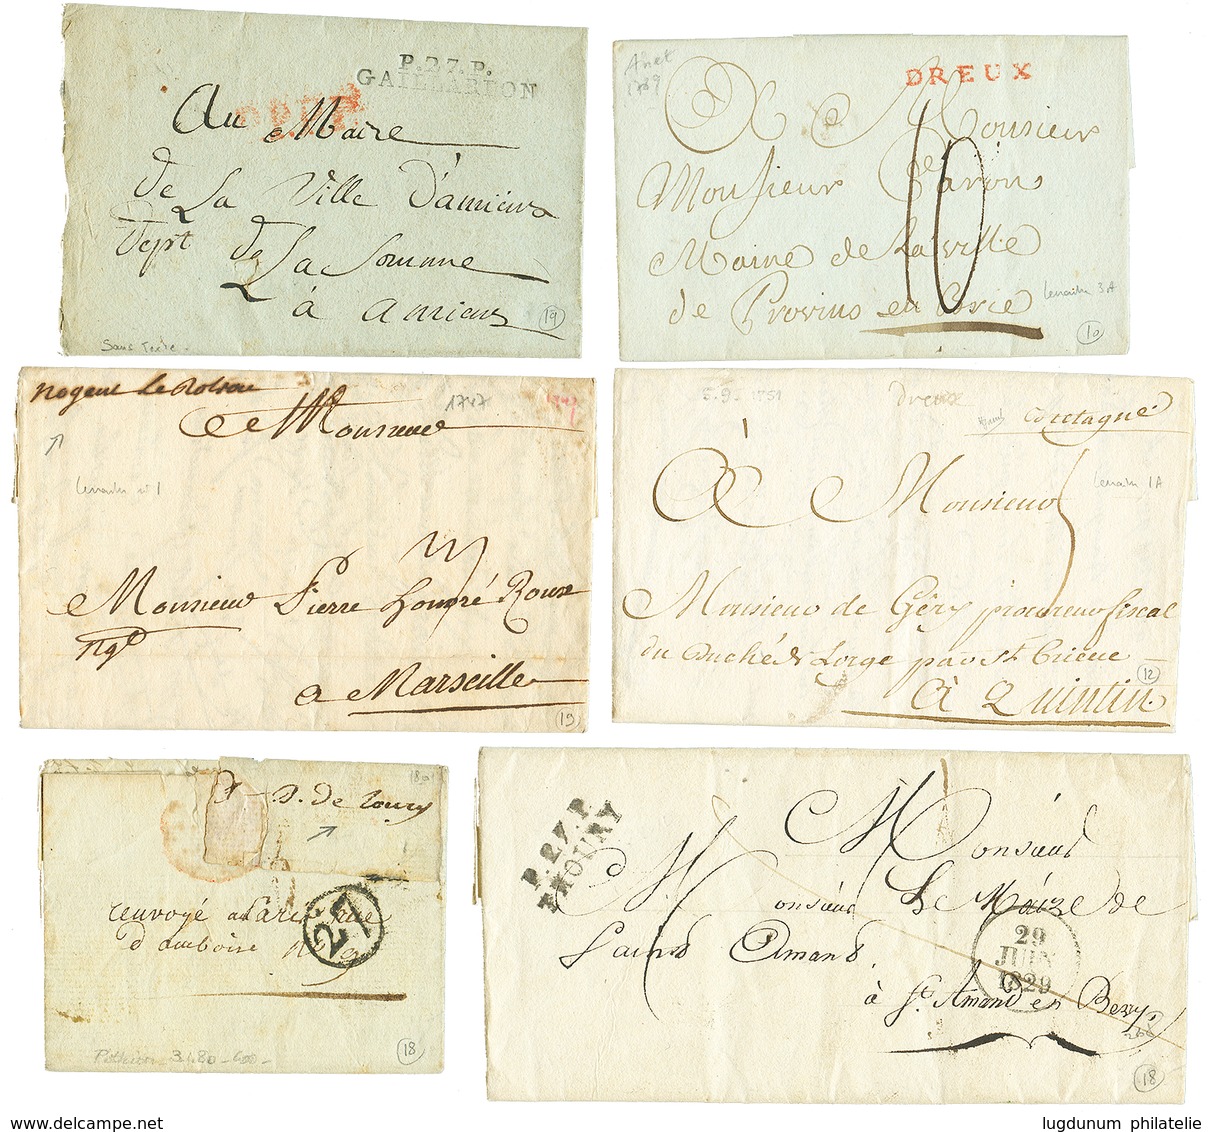 P.27.P.
GAILLARDON
Au Maire
de La Ville d'amiens
Dept de La Somme
à amiens
Sans Texte
19
Anet
1789
DREUX
A Monsieur
Monsieur
Maire de la ville
de Provins en brie
Lenain 3A
10
Nogent Le Rotrou
1747
Monsieur
Lenain n°1
Monsieur Pierre honoré Roux
Ngt
a Marseille
19
5.9.1751
Dreux
Bretagne
À Monsieur
Lenain 1A
Monsieur de Géry procureur fiscal
du Duché de Lorge par St brieue
12
À Quintin
180
de toury
renvoyé a Paris rue
d'amboise
27
Pothion 31.80
18
P.27.P.
THOURY
Monsieur
Monsieur Le Maire de
Saint Amand
29
JUIN
1829
à St Amand en Berry
18
www.delcampe.net
lugdunum philatelie